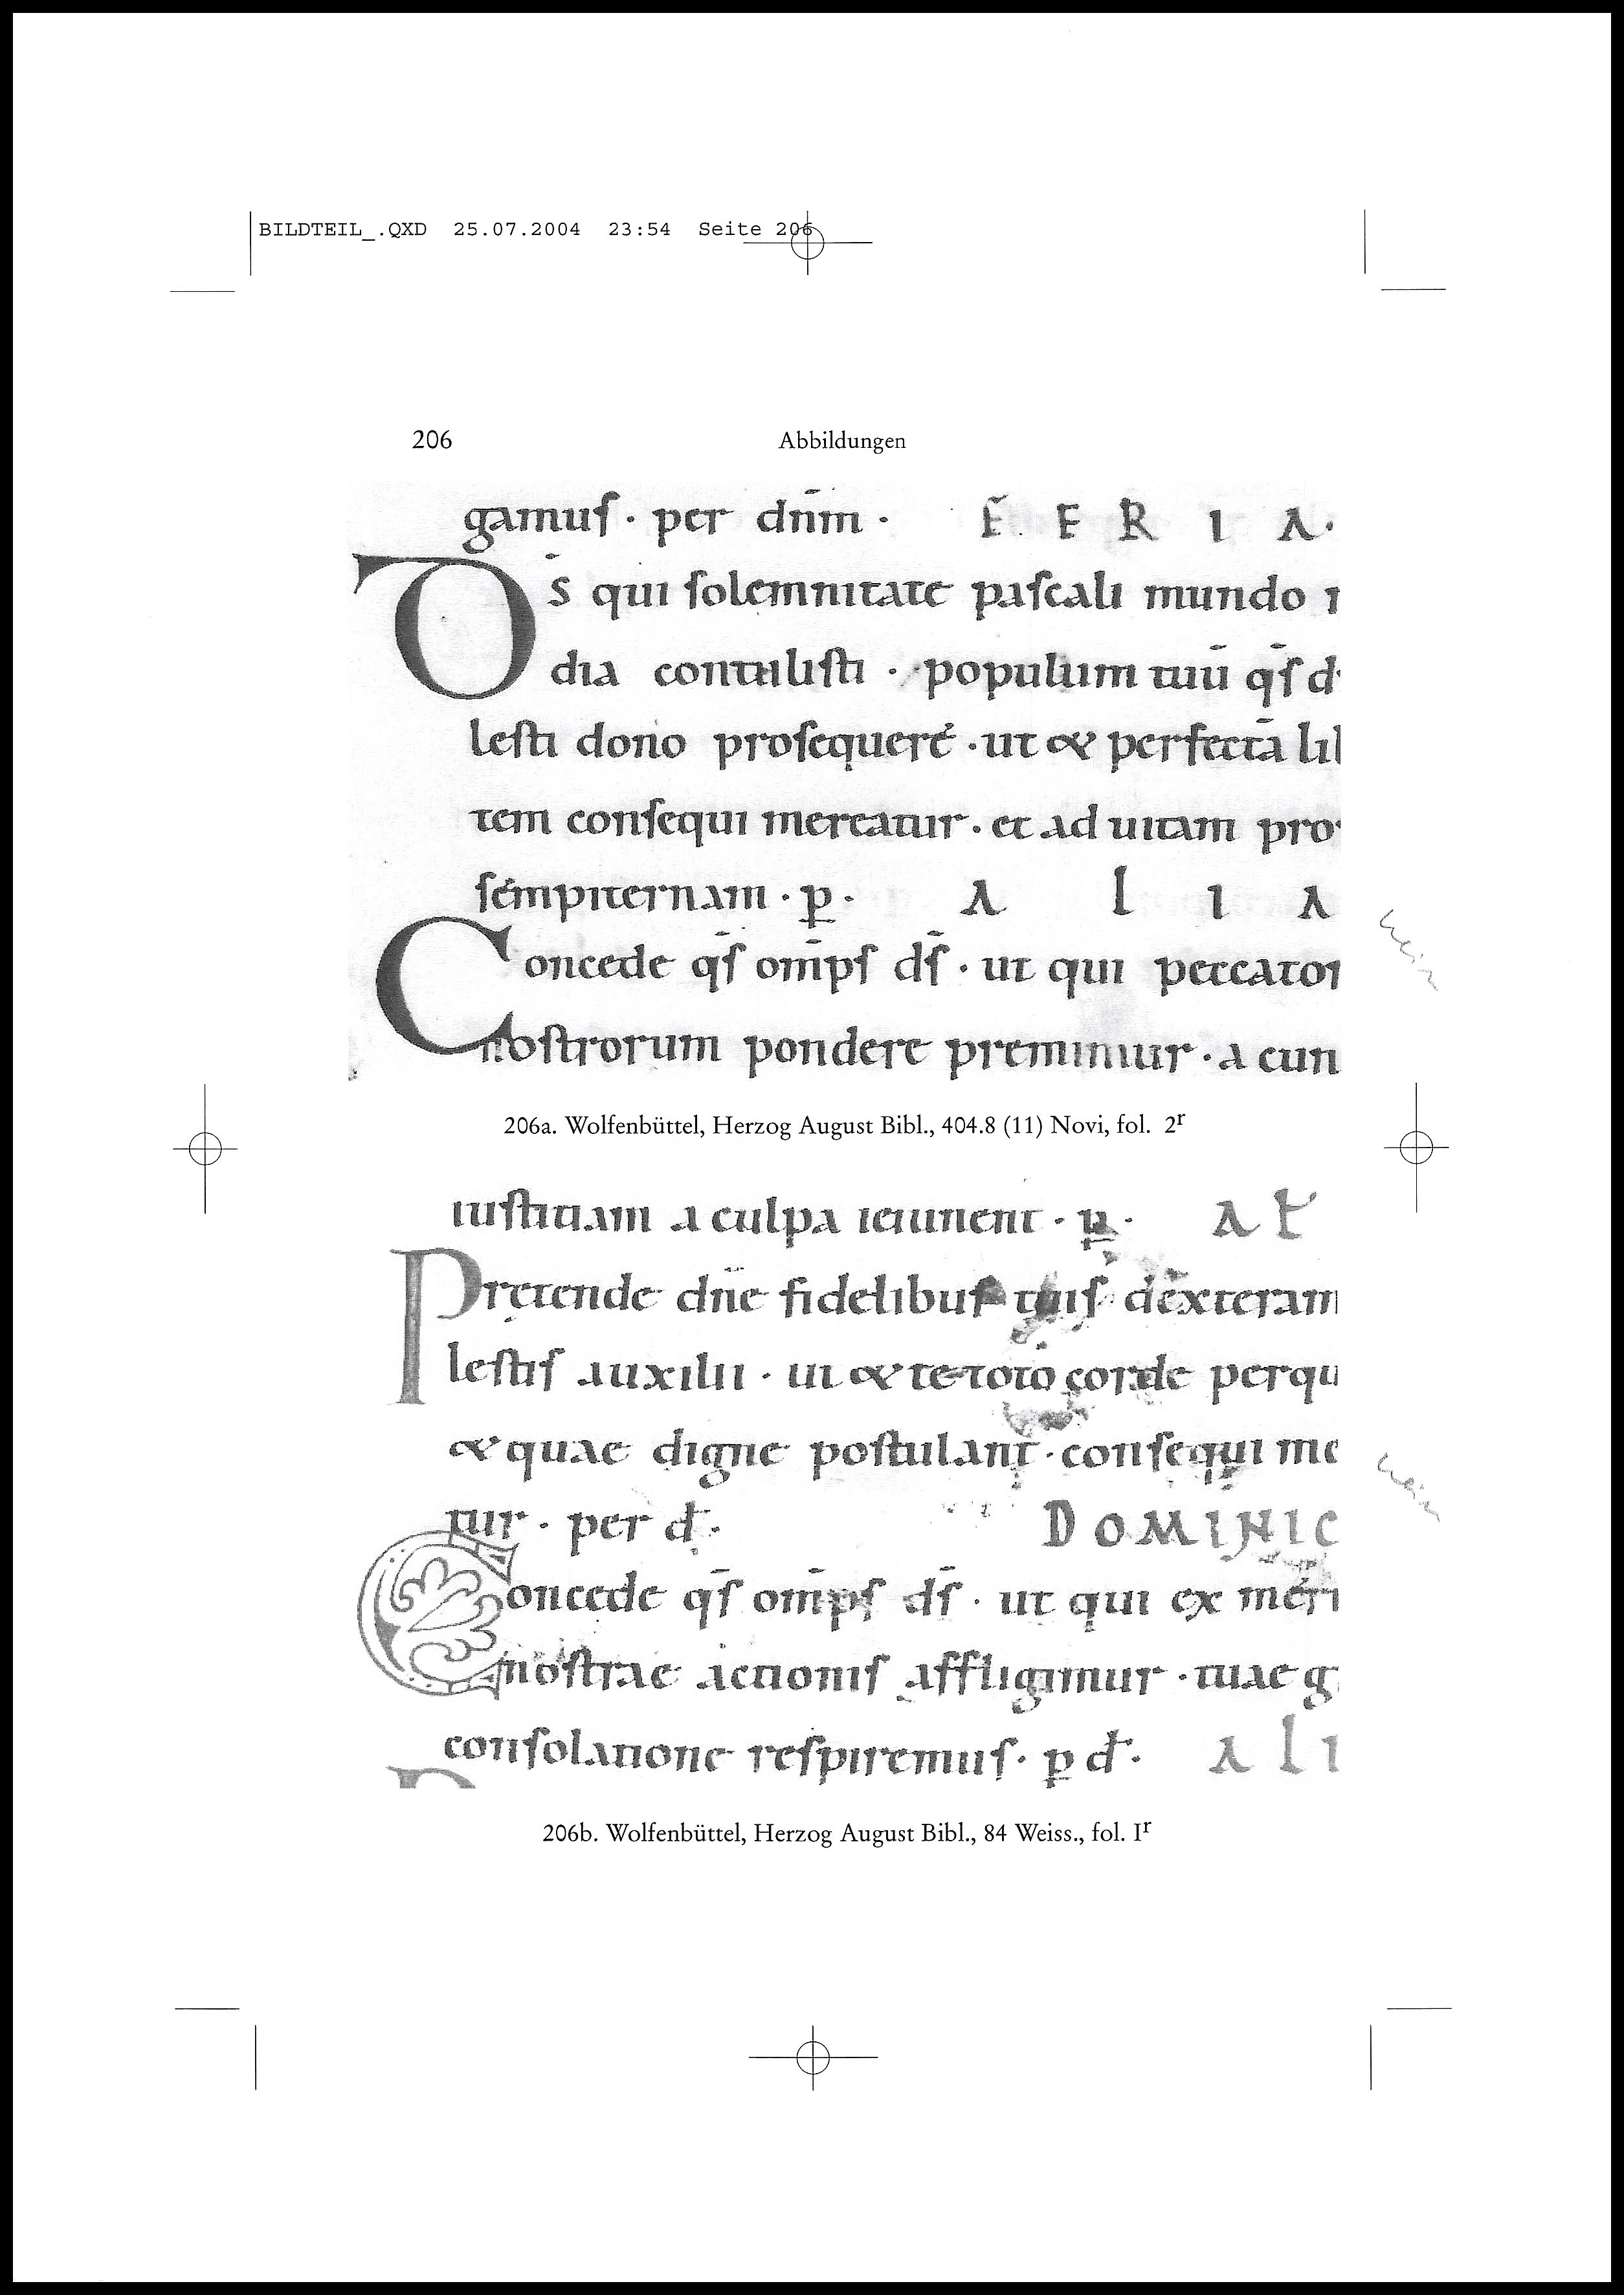 BILDTEIL_.QXD 25.07.2004 23:54 Seite 206
206 Abbildungen
gamuſ · per dn̄m · F E R I A ·
D̄S qui ſolemnitate paſcali mundo
dia contuliſti · populum tuū qſ̄ d
leſti dono proſequere · ut & perfectā lib
tem conſequi mereatur · et ad uitam pro
ſempiternam · p̲ · A L I A
Concede qſ̄ om̄pſ dſ̄ · ut qui peccator
noſtrorum pondere premimur · a cun
206a. Wolfenbüttel, Herzog August Bibl., 404.8 (11) Novi, fol. 2ʳ
iuſtitiam a culpa ieiunent · p̲ · A L
Prętende dn̄e fidelibuſ tuiſ dexteram
leſtiſ auxilii · ut & te toto corde perqu
& quae digne poſtulant · conſequi me
tur · per d̵ · DOMINIC
Concede qſ̄ om̄pſ dſ̄ · ut qui ex meri
noſtrae actioniſ affligimur · tuae g
conſolatione reſpiremuſ · p̲ d̵ · A L I
206b. Wolfenbüttel, Herzog August Bibl., 84 Weiss., fol. Iʳ
nein
nein